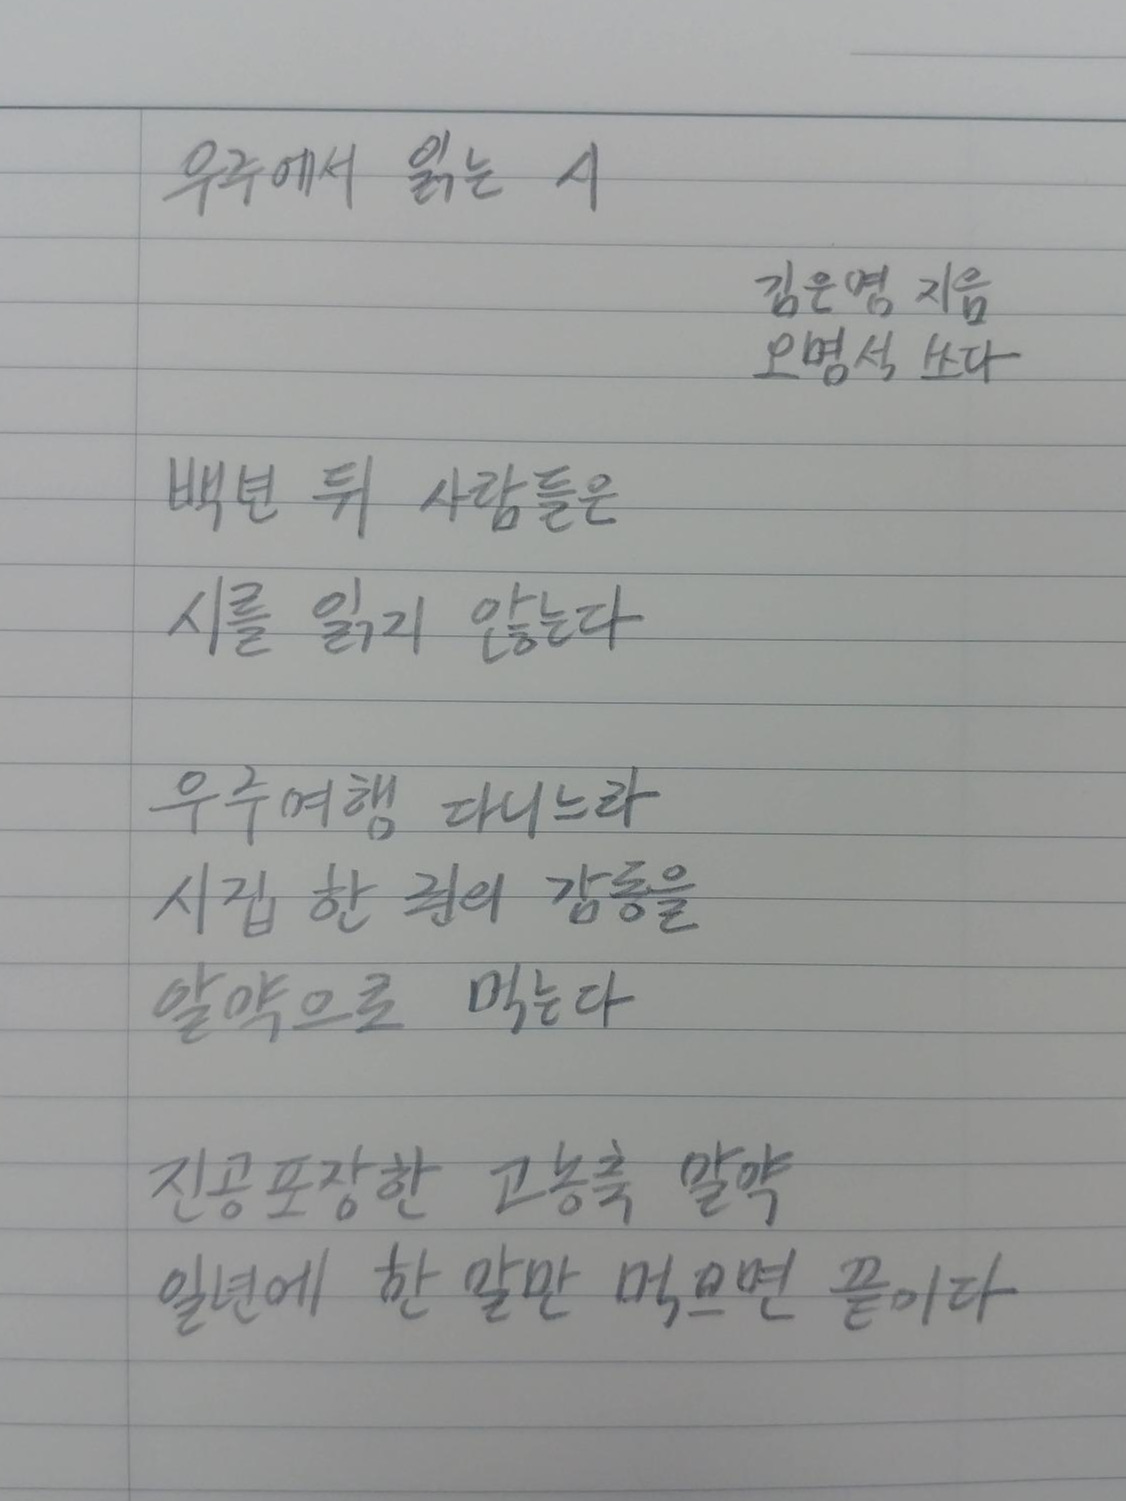 우주에서 읽는 시
김은영 지음
오명석 쓰다
백년 뒤 사람들은
시를 읽지 않는다
우주여행 다니느라
시집 한 권의 감동을
알약으로 먹는다
진공포장한 고농축 알약
일년에 한 알만 먹으면 끝이다